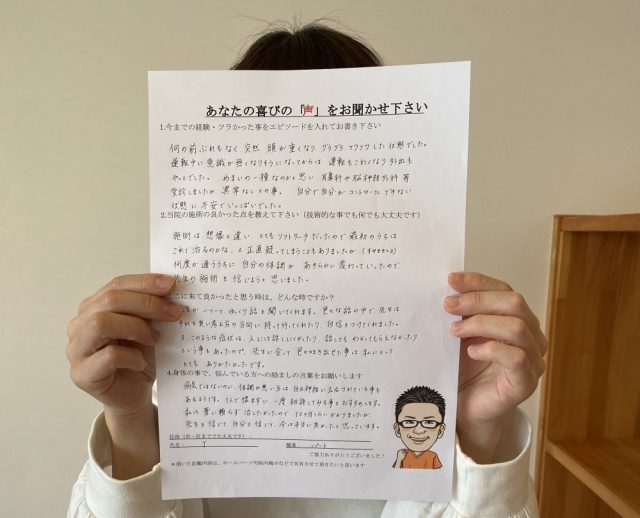 あなたの喜びの「声」をお聞かせ下さい
1.今までの経験・ツラかった事をエピソードを入れてお書き下さい
何の前ぶれもなく 突然 頭が重くなり、グラグラ フワフワ した状態でした。
運転中に意識が無くなりそうになってからは、運転もこわくなり 外出も
やっとでした。 めまいの一種なのかと思い 耳鼻科や脳神経外科等
受診しましたが 異常なしとの事。 自分で自分が コントロールできない
状態に 不安でいっぱいでした。
2.当院の施術の良かった点を教えて下さい（技術的な事でも何でも大丈夫です）
施術は、想像と違い とてもソフトタッチだったので 最初のうちは
これで治るのかな、と 正直疑ってしまうこともありましたが (すみません)
何度か通ううちに 自分の体調が あきらかに変わっていったので
先生の施術を信じようと思いました。
ここに来て良かったと思う時は、どんな時ですか？
が 一つ一つ ゆっくり話を聞いてくれます。色々な話の中で 先生は
それを良い考え方の方向に持って行ってくれたり 自信をつけてくれました。
このような症状は、人には話しにくかったり 話しても わかってもらえなかったり
という事もあったので、先生に会って 色々吐き出せた事は 私にとって
とても ありがたかったです。
4.身体の事で、悩んでいる方への励ましの言葉をお願いします
病気ではないのに、体調が悪い方は 自律神経に左右されている事も
あるようです。1人で悩まずに 一度 相談してみる事をおすすめします。
私は 薬に頼らず 治したかったので 10ヶ月くらいかかりましたが
先生を信じて 自分を信じて、今は本当に良かったと思っています。
住所（市・区までで大丈夫です）
氏名： Y 職業： パート
ご協力ありがとうございました！
※頂いた記載内容は、ホームページや院内掲示などで共有させて頂きたいと思います